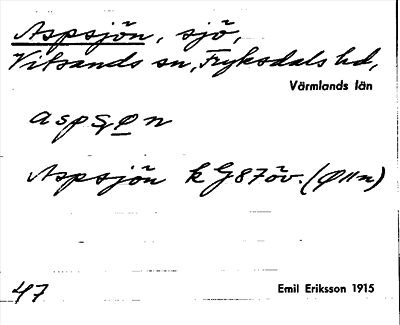 Aspsjön, sjö,
Vitsands sn, Fryksdals hd,
Värmlands län
Aspsjön k G87öv.
47
Emil Eriksson 1915